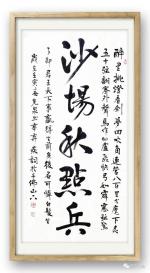 醉里挑燈看劍夢回吹角連營八百里分麾下炙
五十弦翻塞外聲馬作的盧飛快弓如霹靂弦驚
沙場秋點兵
了卻君王天下事贏得生前身後名可憐白髮生
歲在壬寅 辛棄疾詞於千佛山